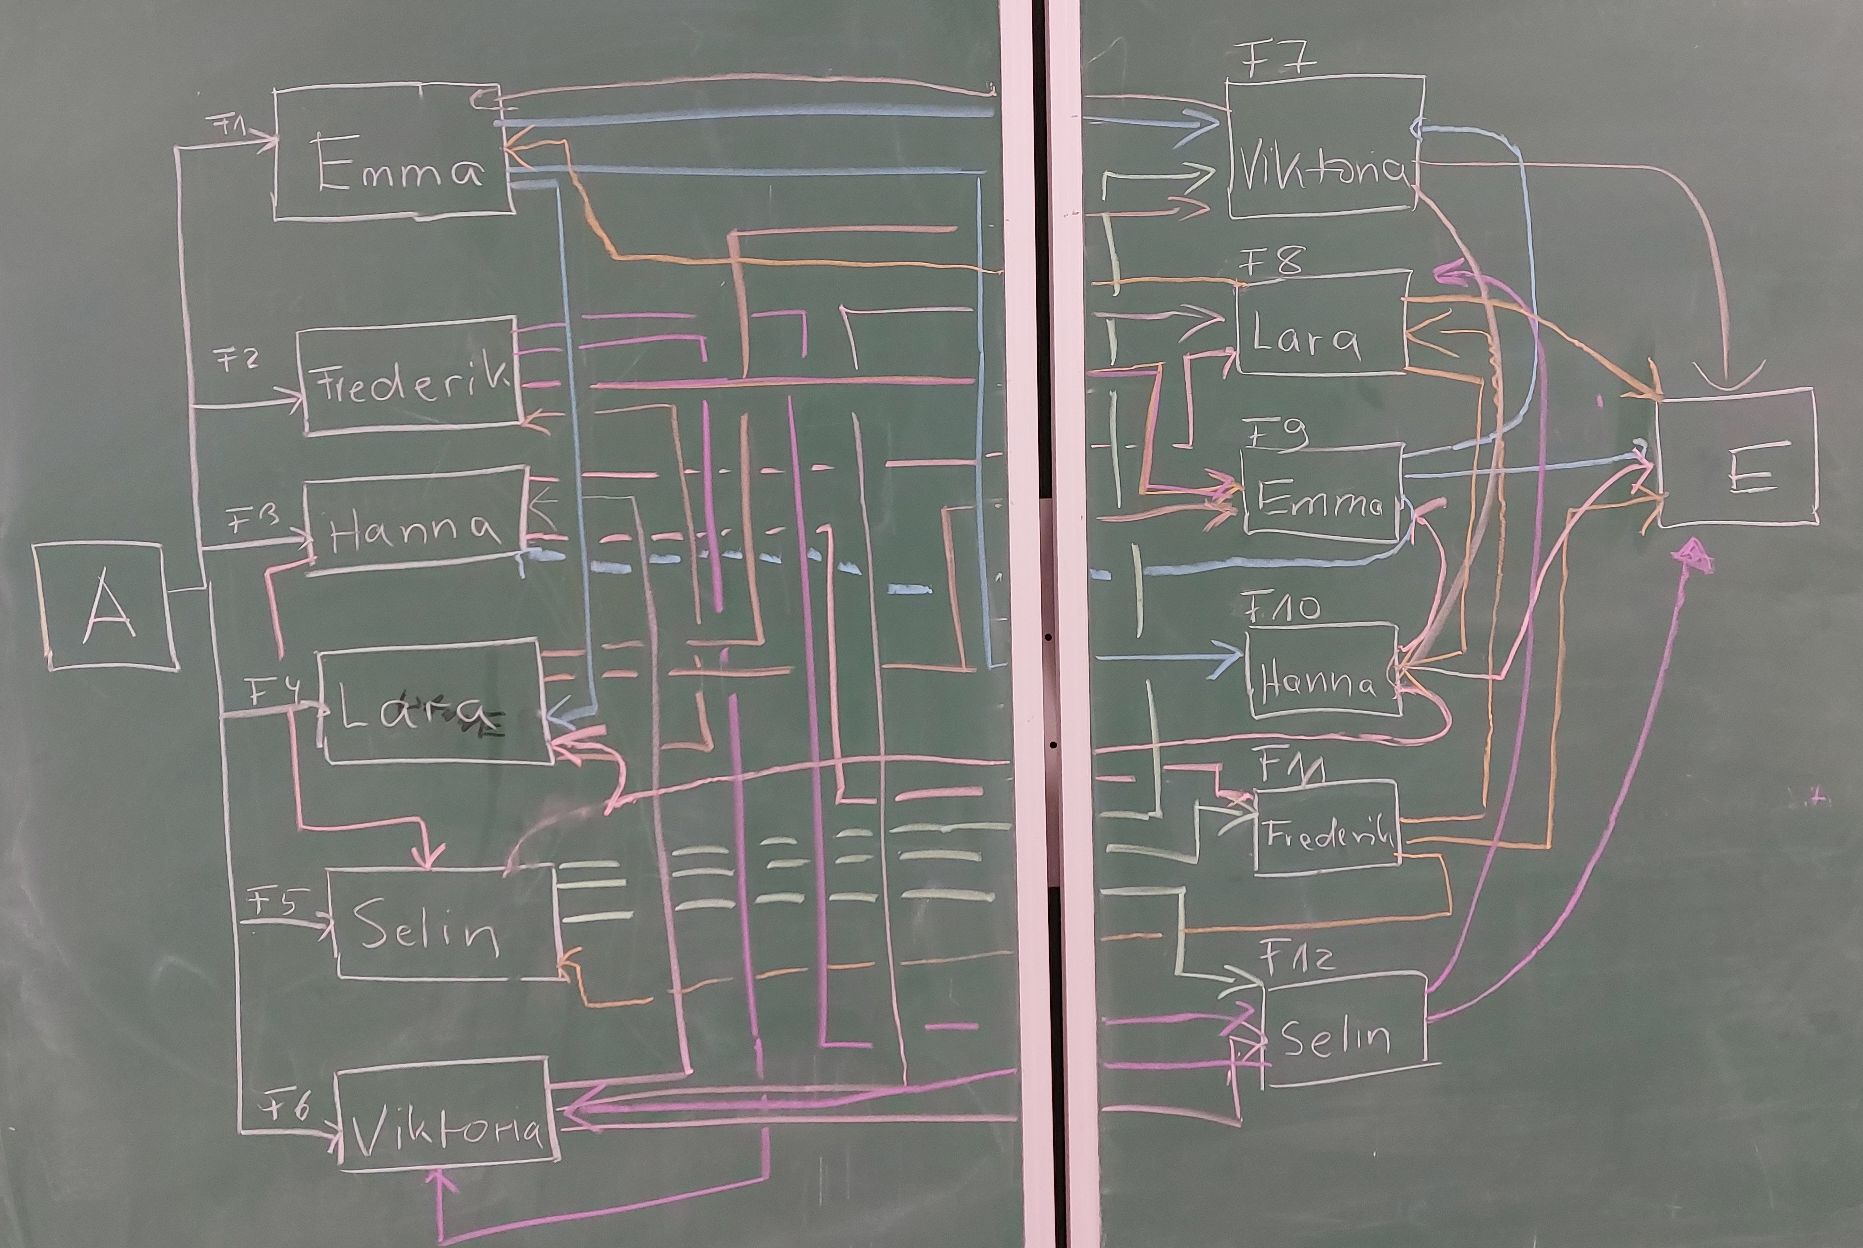 A
F1
Emma
F2
Frederik
F3
Hanna
F4
Lara
F5
Selin
F6
Viktoria
F7
Viktoria
F8
Lara
F9
Emma
F10
Hanna
F11
Frederik
F12
Selin
E